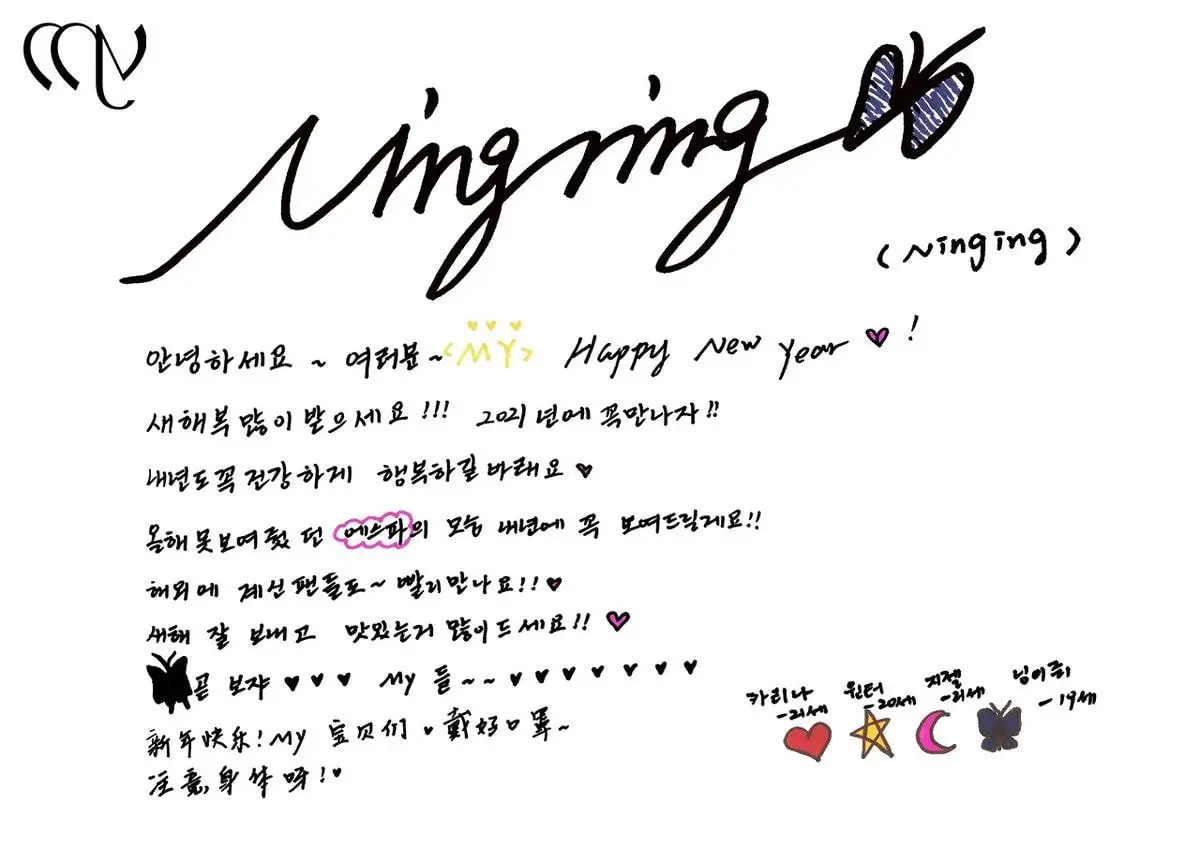 MY
Ningning
(Ninging)
안녕하세요 ~ 여러분~ <MY> Happy New Year ♥ !
새해복 많이 받으세요 !!! 2021년에 꼭만나자!!
내년도꼭건강하게 행복하길바래요 ♥
올해못보여줬 던 에스파의 모습 내년에 꼭 보여드릴게요!!
해외에 계신팬들도~ 빨리만나요!! ♥
새해 잘 보내고 맛있는거 많이드세요!! ♥
곧 보쟈 ♥ ♥ ♥ My 들~~ ♥ ♥ ♥ ♥ ♥ ♥ ♥
新年快乐! My 宝贝们 ♥ 戴好口罩~
注意,身体呀! ♥
카리나 -21세 윈터 -20세 지젤 -21세 닝이쮜 -19세